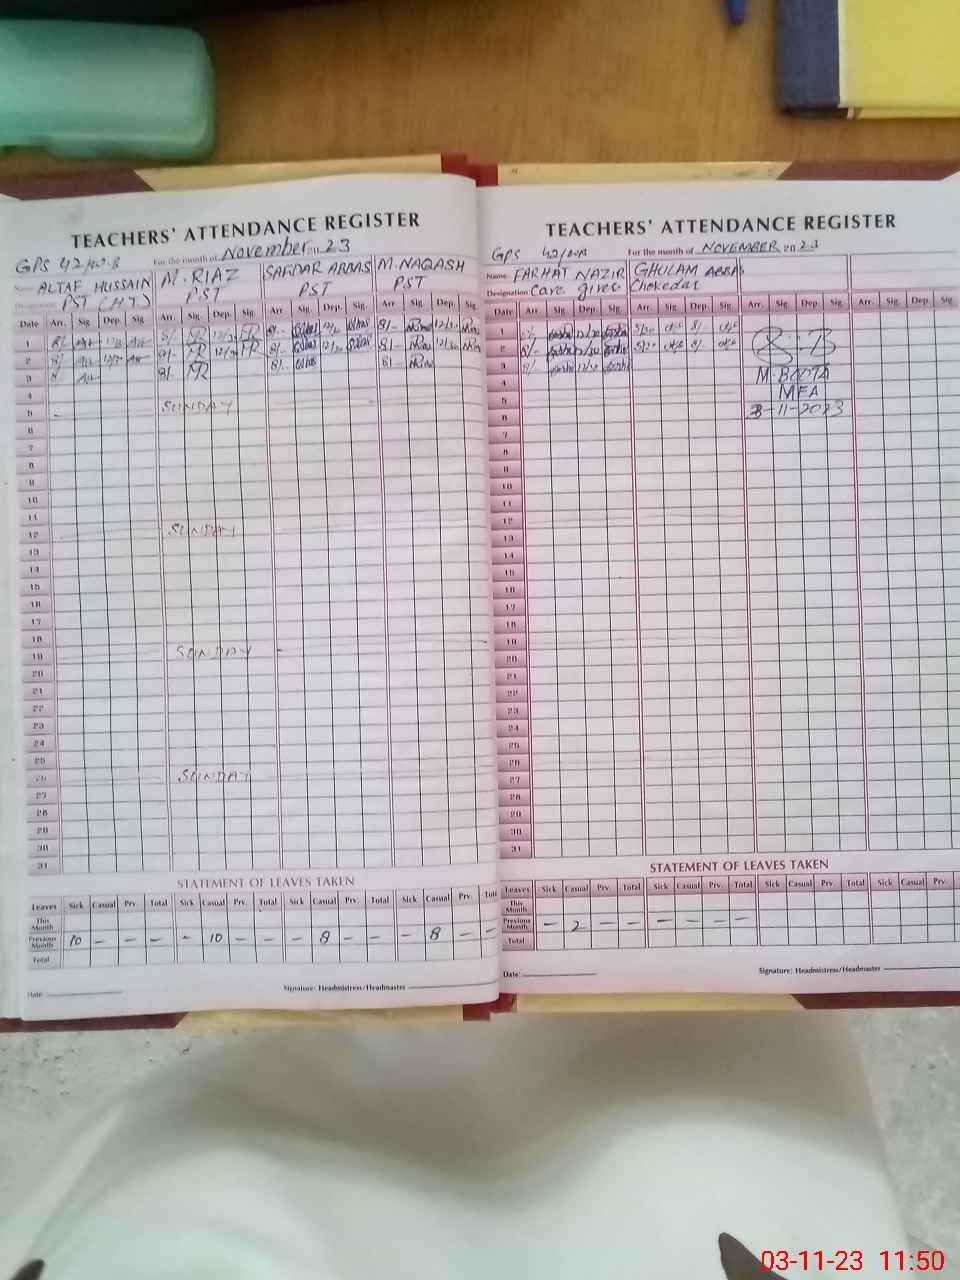 TEACHERS' ATTENDANCE REGISTER
For the month of November 20 23
GPS 42
Name ALTAF HUSSAIN M. RIAZ SAFDAR ABBAS M. NAQASH
PST (H T) PST PST PST
Date Arr. Sig. Dep. Sig. Arr. Sig. Dep. Sig. Arr. Sig. Dep. Sig. Arr. Sig. Dep. Sig.
1 8/- 8/- 12/30 8/- 8/- 12/30
2 8/- 8/- 12/30 8/- 12/30 8/- 12/30
3 8/- 8/- 8/- 8/-
4
5 SUNDAY
6
7
8
9
10
11
12 SUNDAY
13
14
15
16
17
18
19 SUNDAY
20
21
22
23
24
25
26 SUNDAY
27
28
29
30
31
STATEMENT OF LEAVES TAKEN
Leaves Sick Casual Prv. Total Sick Casual Prv. Total Sick Casual Prv. Total Sick Casual Prv. Total
This Month
Previous Month 10 - - - - 10 - - - 8 - - - 8 - -
Total
Date: Signature: Headmistress/Headmaster
TEACHERS' ATTENDANCE REGISTER
For the month of NOVEMBER 20 23
GPS 42
Name FARHAT NAZIR GHULAM ABBAS
Designation Care giver Chokedar
Date Arr. Sig. Dep. Sig. Arr. Sig. Dep. Sig. Arr. Sig. Dep. Sig. Arr. Sig. Dep. Sig
1 8/- 12/30 8/-
2 8/- 12/30 8/-
3 8/- 12/30
4 M. BOOTA
5 MEA
6 3-11-2023
7
8
9
10
11
12
13
14
15
16
17
18
19
20
21
22
23
24
25
26
27
28
29
30
31
STATEMENT OF LEAVES TAKEN
Leaves Sick Casual Prv. Total Sick Casual Prv. Total Sick Casual Prv. Total Sick Casual Prv.
This Month
Previous Month - 2 - - - - - -
Total
Date: Signature: Headmistress/Headmaster
03-11-23 11:50